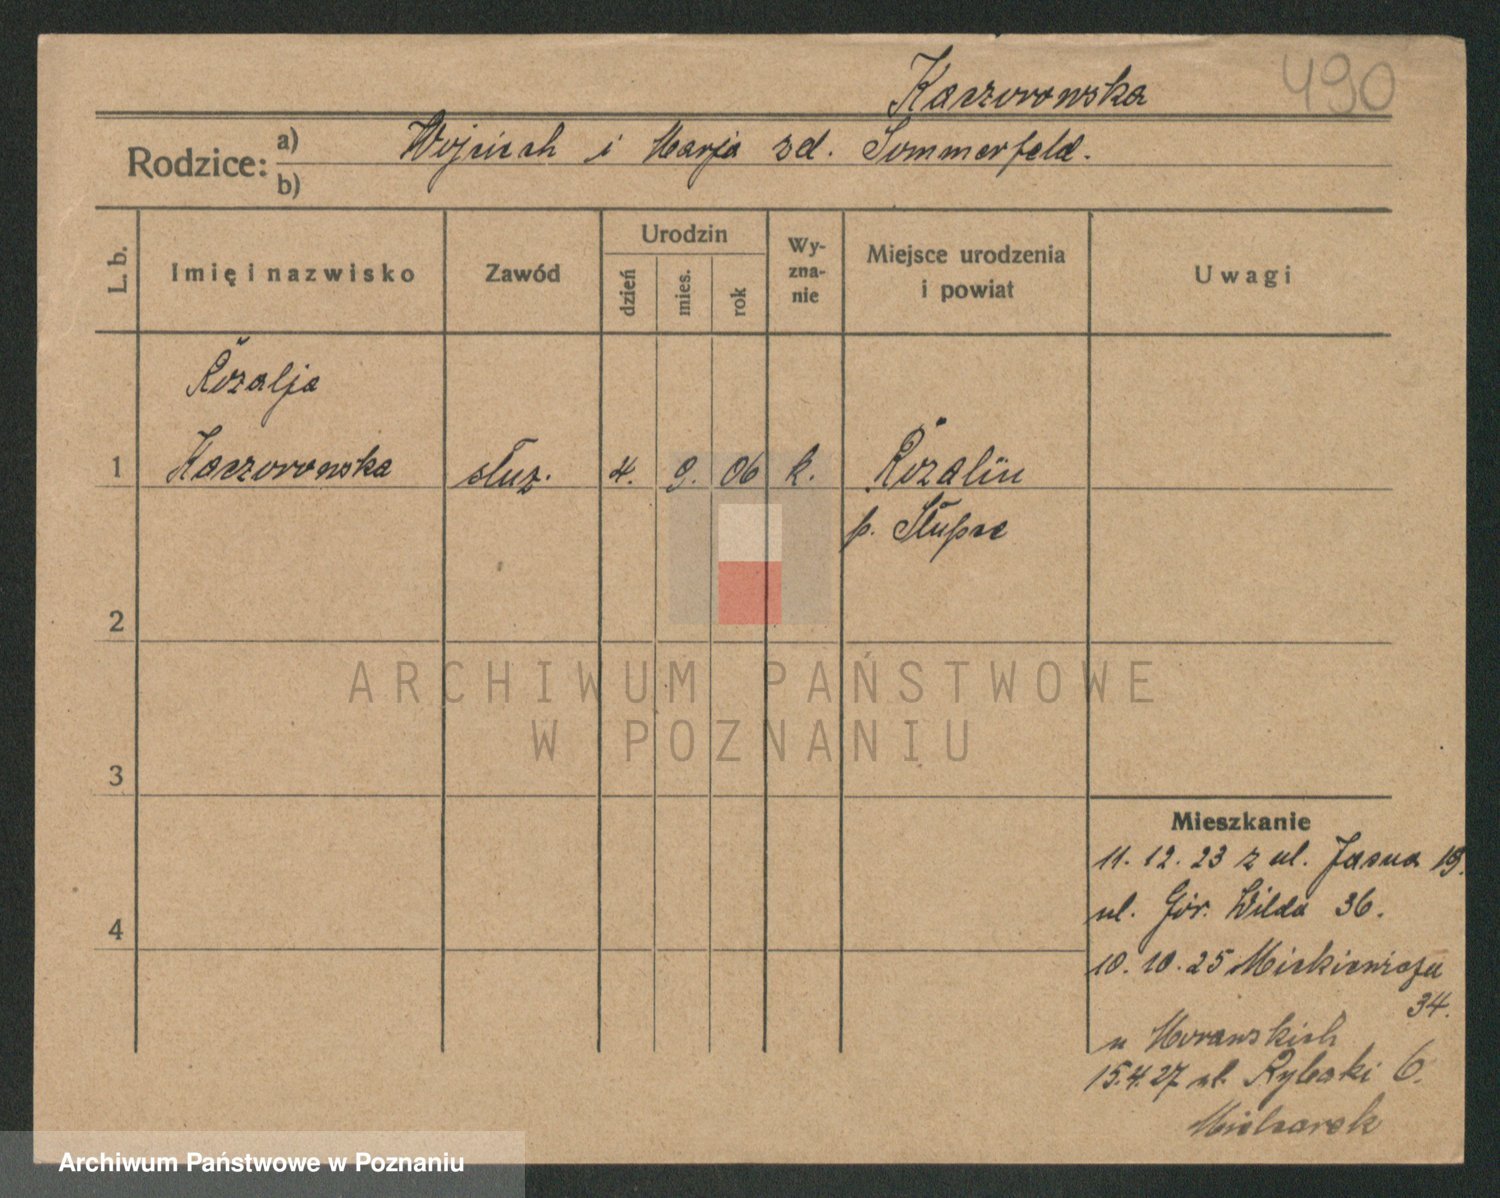 Kaczorowska 490
Rodzice: a) Wojciech i Marja zd. Sommerfeld.
b)
L. b.
Imię i nazwisko
Zawód
Urodzin
dzień
mies.
rok
Wy-
zna-
nie
Miejsce urodzenia
i powiat
Uwagi
Rozalja
1 Kaczorowska służ. 4. 9. 06 k. Rozalin
p. Słupca
2
3
4
Mieszkanie
11. 12. 23 z ul. Jasna 19.
ul. Gór. Wilda 36.
10. 10. 25 Mickiewicza
34.
u Morawskich
15.4.27 ul. Rybaki 6.
Mielcarek
ARCHIWUM PAŃSTWOWE
W POZNANIU
Archiwum Państwowe w Poznaniu